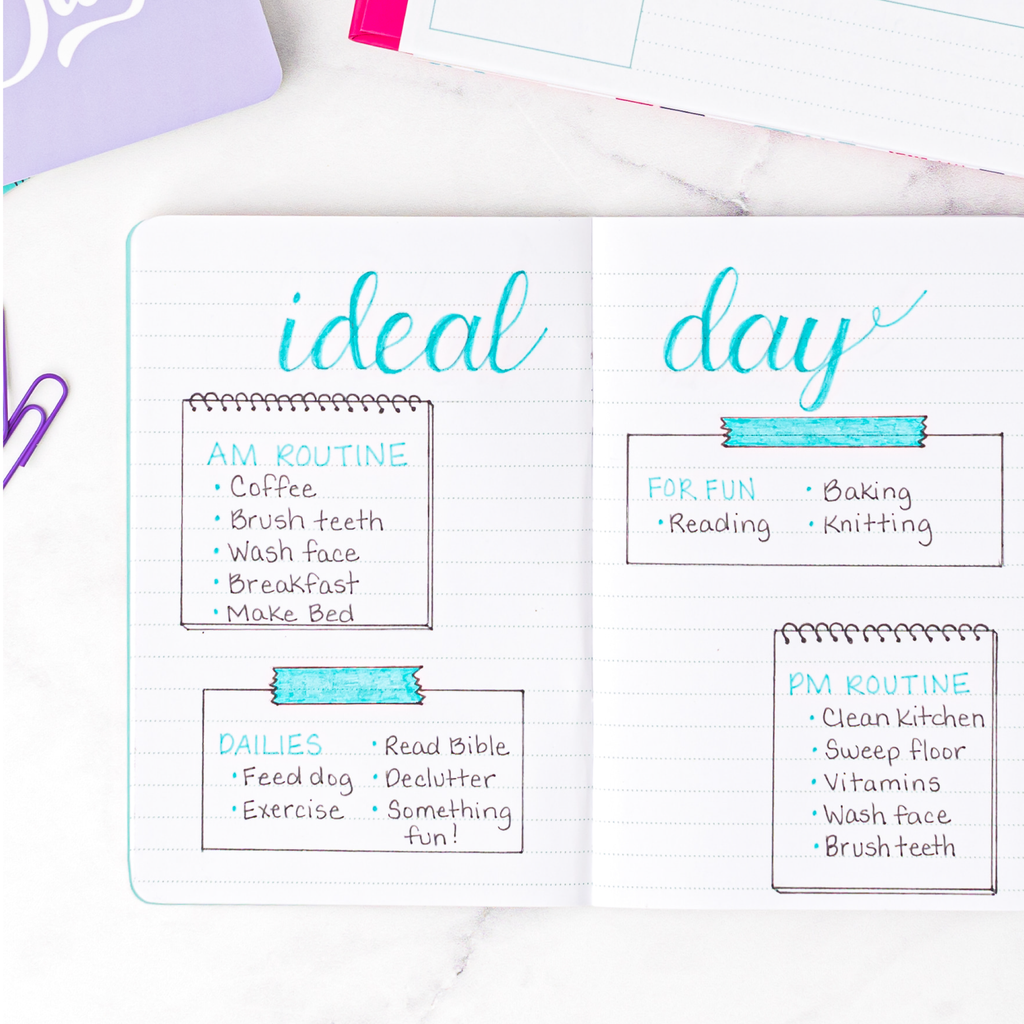 ideal day
AM ROUTINE
• Coffee
• Brush teeth
• Wash face
• Breakfast
• Make Bed
DAILIES
• Feed dog
• Exercise
• Read Bible
• Declutter
• Something
fun!
FOR FUN
• Reading
• Baking
• Knitting
PM ROUTINE
• Clean Kitchen
• Sweep floor
• Vitamins
• Wash face
• Brush teeth